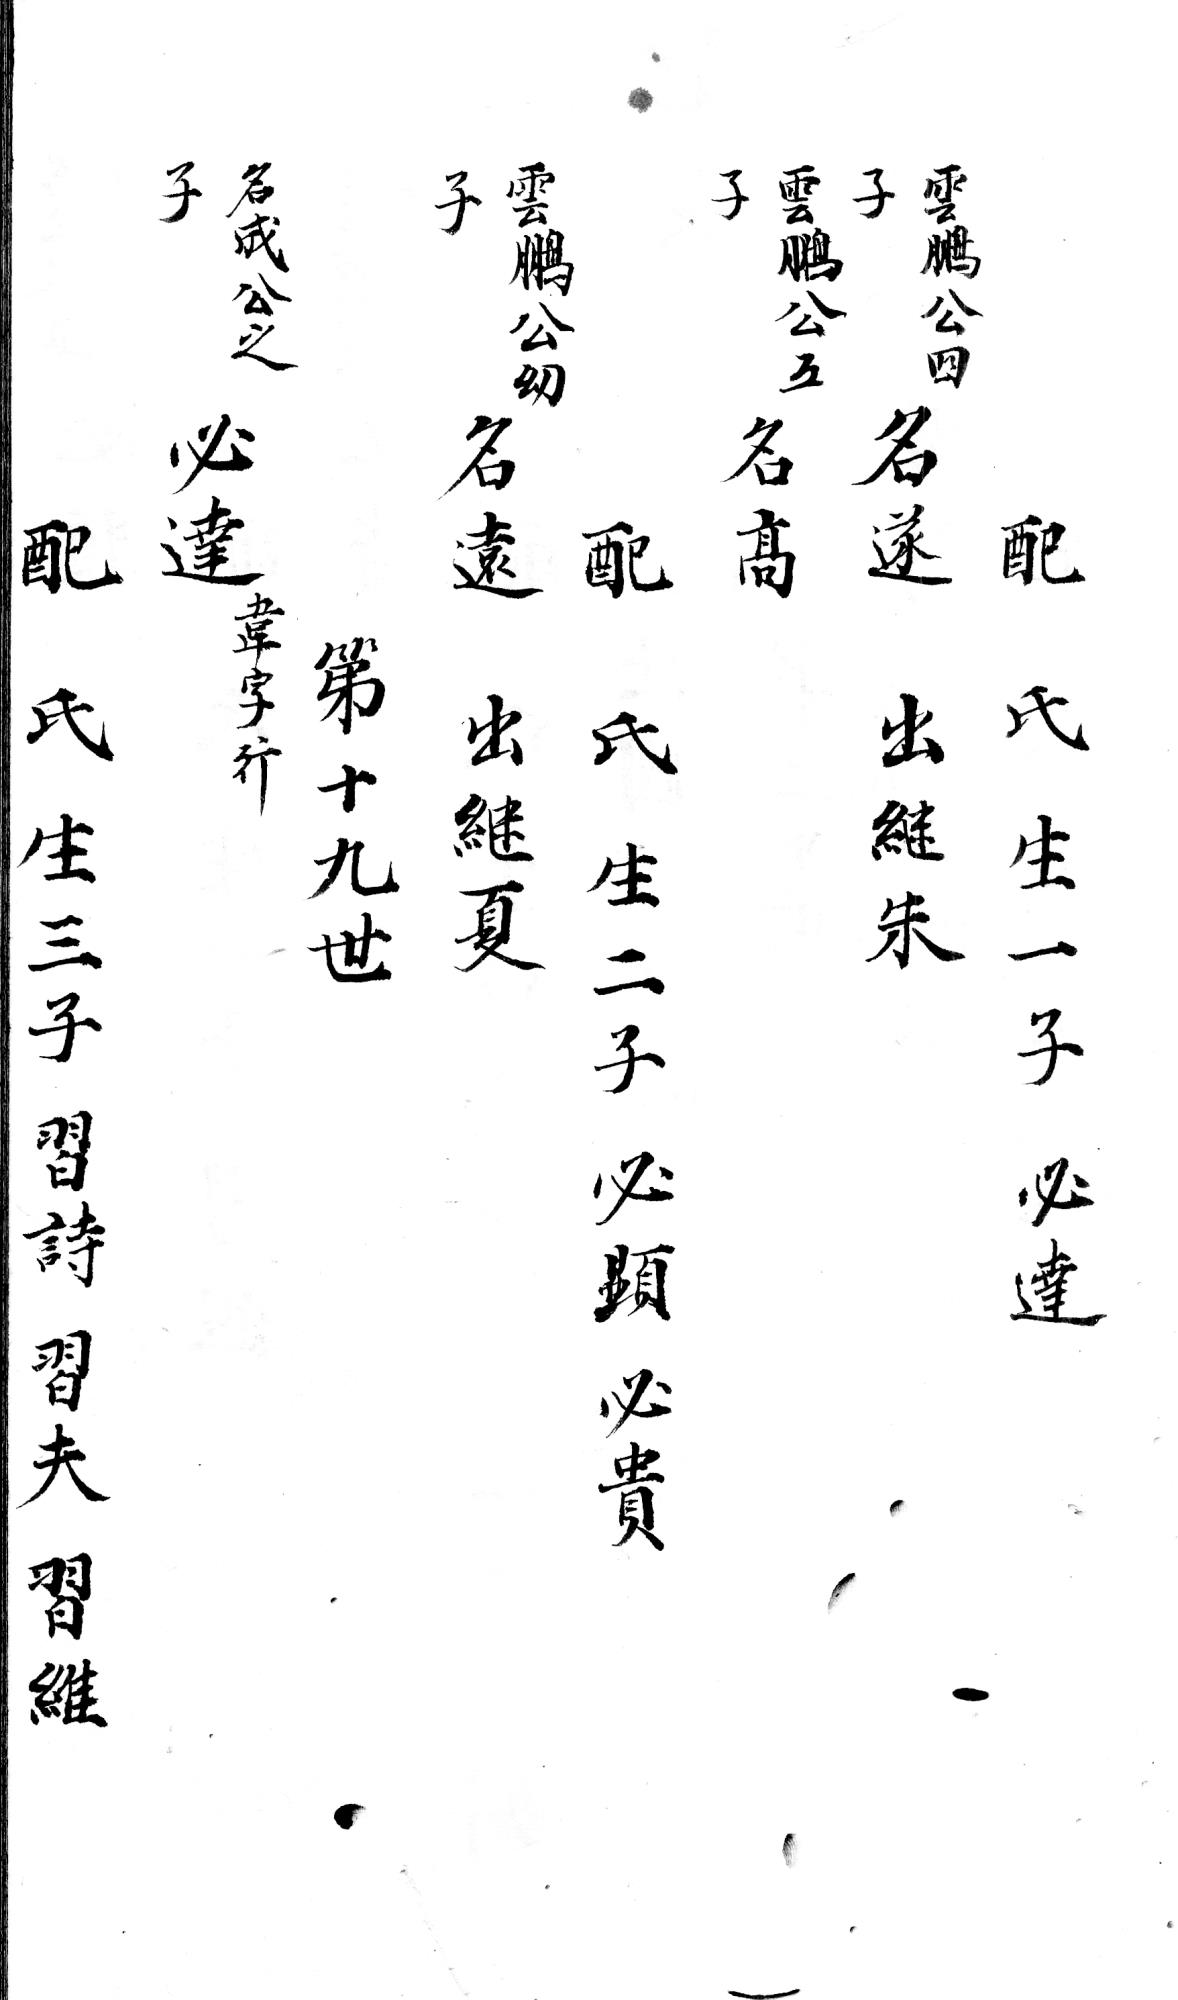 配　氏　生一子　必達
雲鵬公四子　名遂　出継朱
雲鵬公五子　名高
配　氏　生二子　必顕　必貴
雲鵬公幼子　名遠　出継夏
第十九世
名成公之子　必達　韋字行
配　氏　生三子　習詩　習夫　習維